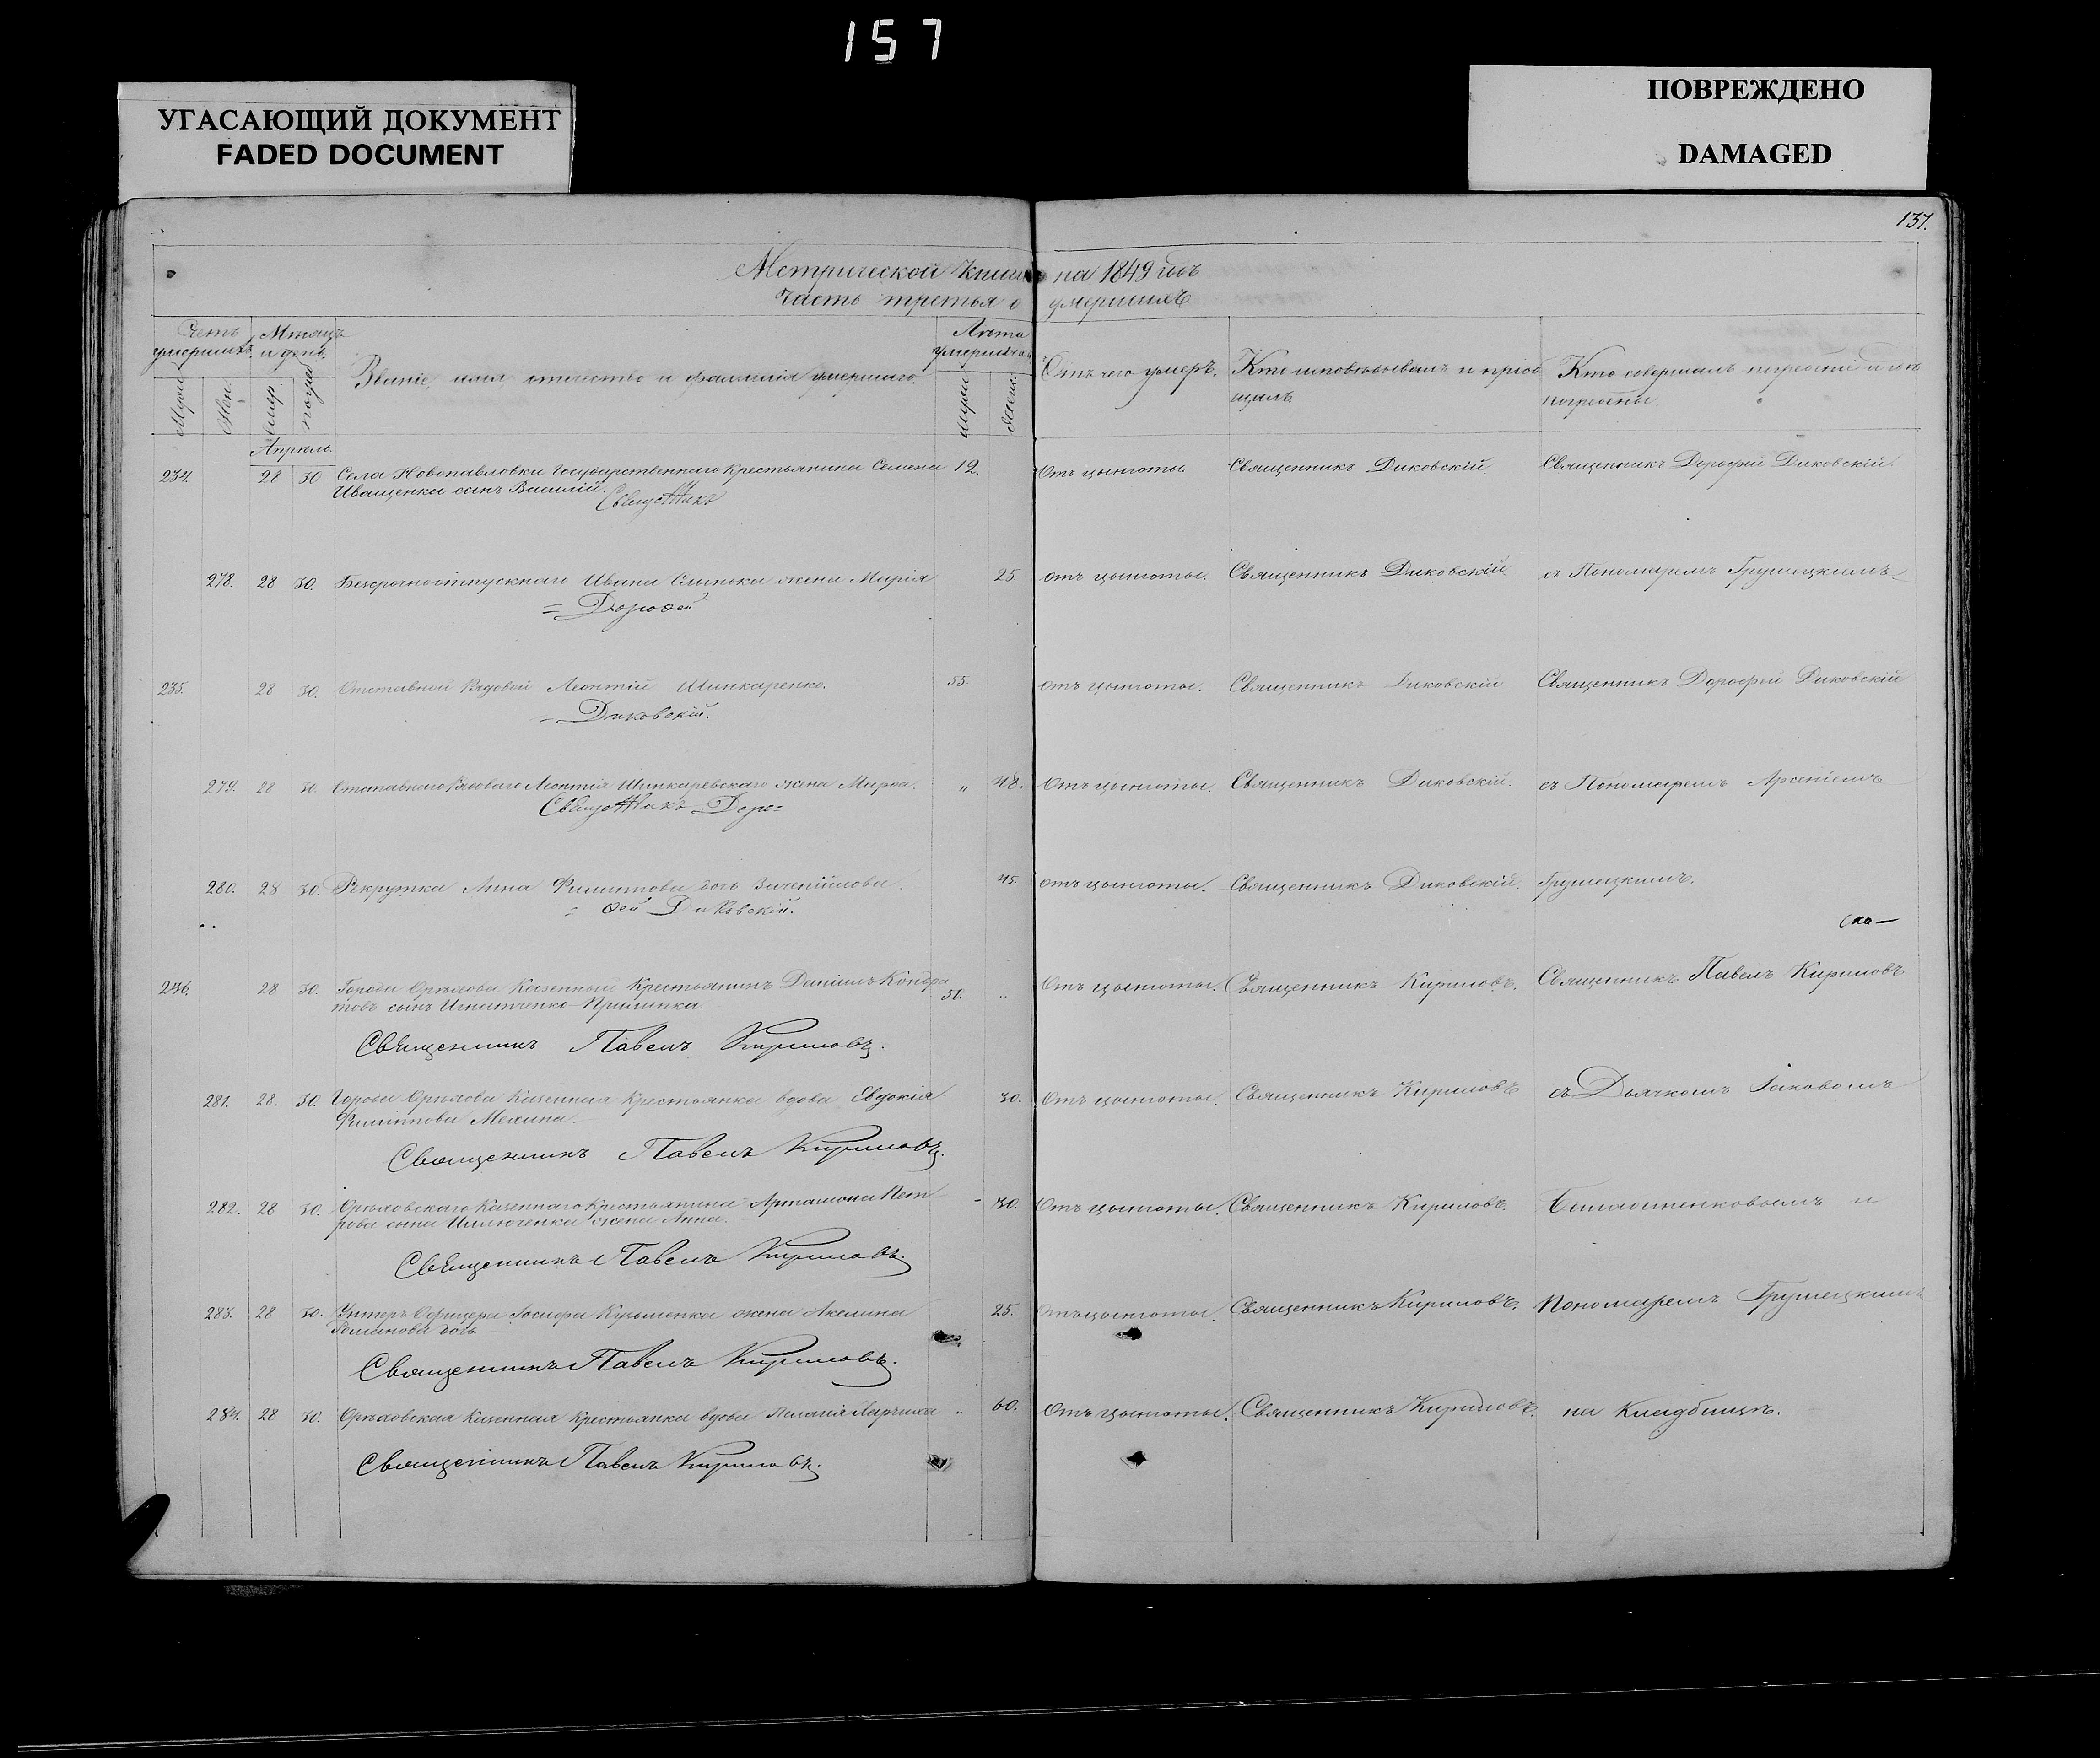 157
УГАСАЮЩИЙ ДОКУМЕНТ
FADED DOCUMENT
ПОВРЕЖДЕНО
DAMAGED
137.
Метрической книги на 1849 годъ
часть третья о умершихъ
Счетъ умершихъ. Мѣсяцъ и день. Званіе, имя отчество и фамилія умершаго. Лѣта умершаго Отъ чего умеръ. Кто исповѣдывалъ и пріобщалъ Кто совершалъ погребеніе и гдѣ погребены.
Апрѣль.
234. 28 30 Села Новопавловки Государственнаго Крестьянина Семена 12. Отъ цынготы Священникъ Диковскій. Священникъ Дорофей Диковскій.
Иващенка сынъ Василій.
278. 28 30. Безсрочноотпускнаго Ивана жена Марія 25. отъ цынготы. Священникъ Диковскій съ Пономаремъ Грушецкимъ
= Дорофей
235. 28 30. Отставной Рядовой Леонтій Шинкаренко. 55. отъ цынготы. Священникъ Диковскій Священникъ Дорофей Диковскій
- Диковскій.
279. 28 30. Отставнаго Рядоваго Леонтія Шинкаревскаго жена Марфа. „ 48. Отъ цынготы. Священникъ Диковскій. съ Пономаремъ Арсеніемъ
= Доро=
280. 28 30. Рекрутка Анна Филиппова дочь 45. отъ цынготы. Священникъ Диковскій. Грушецкимъ.
= фей Диковскій.
236. 28 30. Города Орѣхова Казенный Крестьянинъ Даніилъ Кондра 51. Отъ цынготы. Священникъ Кириловъ. Священникъ Павелъ Кириловъ
товъ сынъ Игнатченко
Священникъ Павелъ Кириловъ.
281. 28. 30. Города Орѣхова Казенная Крестьянка вдова Евдокія 30. Отъ цынготы. Священникъ Кириловъ съ Дьячкомъ Іаковомъ
Филиппова
Священникъ Павелъ Кириловъ.
282. 28 30. Орѣховскаго Казеннаго Крестьянина Артамона Пет 30. Отъ цынготы. Священникъ Кириловъ. и
рова сына жена Анна.
Священникъ Павелъ Кириловъ.
283. 28 30. Унтеръ Офицера Іосифа Кузьменка жена Акелина 25. Отъ цынготы. Священникъ Кириловъ. Пономаремъ Грушецкимъ
Романова дочь.
Священникъ Павелъ Кириловъ.
284. 28 30. Орѣховская Казенная Крестьянка вдова „ 60. Отъ цынготы. Священникъ Кириловъ. на Кладбищѣ.
Священникъ Павелъ Кириловъ.